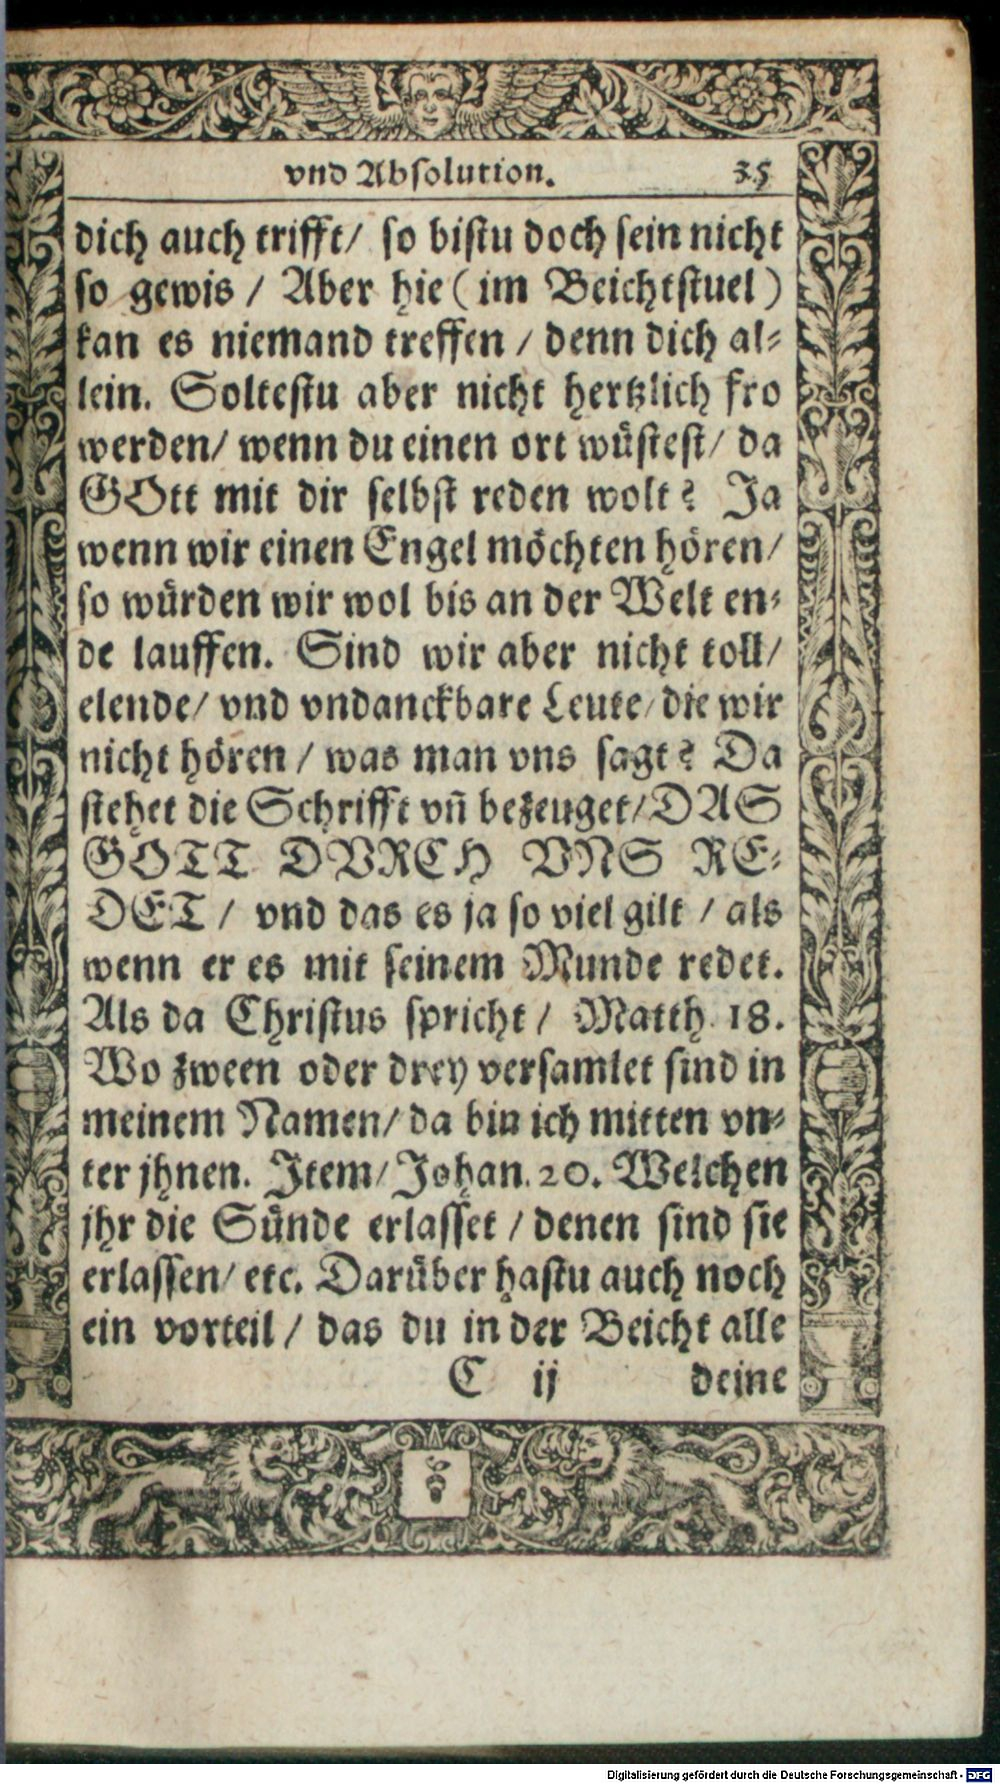 vnd Absolution. 35
dich auch trifft/ so bistu doch sein nicht
so gewis / Aber hie (im Beichtstuel)
kan es niemand treffen / denn dich al⸗
lein. Soltestu aber nicht hertzlich fro
werden/ wenn du einen ort wüstest/ da
GOtt mit dir selbst reden wolt? Ja
wenn wir einen Engel möchten hören/
so würden wir wol bis an der Welt en⸗
de lauffen. Sind wir aber nicht toll/
elende/ vnd vndanckbare Leute/ die wir
nicht hören / was man vns sagt? Da
stehet die Schrifft vn̄ bezeuget/ DAS
GOTT DVRCH VNS RE⸗
DET / vnd das es ja so viel gilt / als
wenn er es mit seinem Munde redet.
Als da Christus spricht / Matth. 18.
Wo zween oder drey versamlet sind in
meinem Namen/ da bin ich mitten vn⸗
ter jhnen. Item/ Johan. 20. Welchen
jhr die Sünde erlasset / denen sind sie
erlassen/ etc. Darüber hastu auch noch
ein vorteil / das du in der Beicht alle
C ij deine
Digitalisierung gefördert durch die Deutsche Forschungsgemeinschaft - DFG